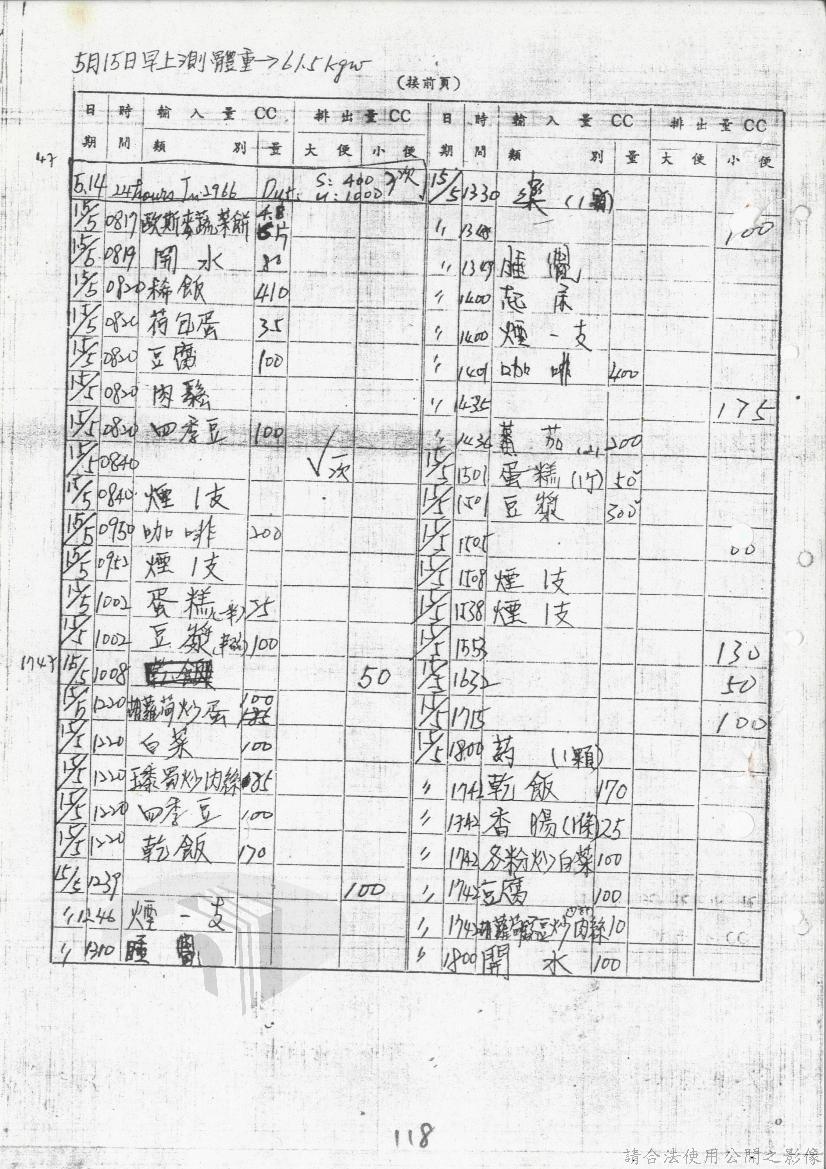 5月15日早上測體重→61.5kgw
(接前頁)
日期 時間 輸入量CC 類別 量 排出量CC 大便 小便
5.14 24hours In:2966 Out: S:400 U:1000 次
15/5 0817 歐斯麥蔬菜餅 片
15/5 0819 開水 80
15/5 0820 稀飯 410
15/5 0820 荷包蛋 35
15/5 0820 豆腐 100
15/5 0820 肉鬆
15/5 0820 四季豆 100
15/5 0840 √一次
15/5 0840 煙1支
15/5 0950 咖啡 200
15/5 0952 煙1支
15/5 1002 蛋糕 25
15/5 1002 豆漿 100
15/5 1008 50
15/5 1220 胡蘿蔔炒蛋 100
15/5 1220 白菜 100
15/5 1220 玉蜀黍炒肉絲 85
15/5 1220 四季豆 100
15/5 1220 乾飯 170
15/5 1239 100
〃 1246 煙一支
〃 1310 睡覺
日期 時間 輸入量CC 類別 量 排出量CC 大便 小便
15/5 1330 藥(1顆)
〃 1348 100
〃 1349 睡覺
〃 1400 起床
〃 1400 煙一支
〃 1401 咖啡 400
〃 1435 175
〃 1436 蕃茄 200
15/5 1501 蛋糕 50
15/5 1501 豆漿 300
15/5 1505 00
15/5 1508 煙1支
15/5 1538 煙1支
15/5 1553 130
15/5 1632 50
15/5 1715 100
15/5 1800 葯(1顆)
〃 1742 乾飯 170
〃 1742 香腸(1條) 25
〃 1742 冬粉炒白菜 100
〃 1742 豆腐 100
〃 1742 肉絲 10
〃 1800 開水 100
118
請合法使用公開之影像